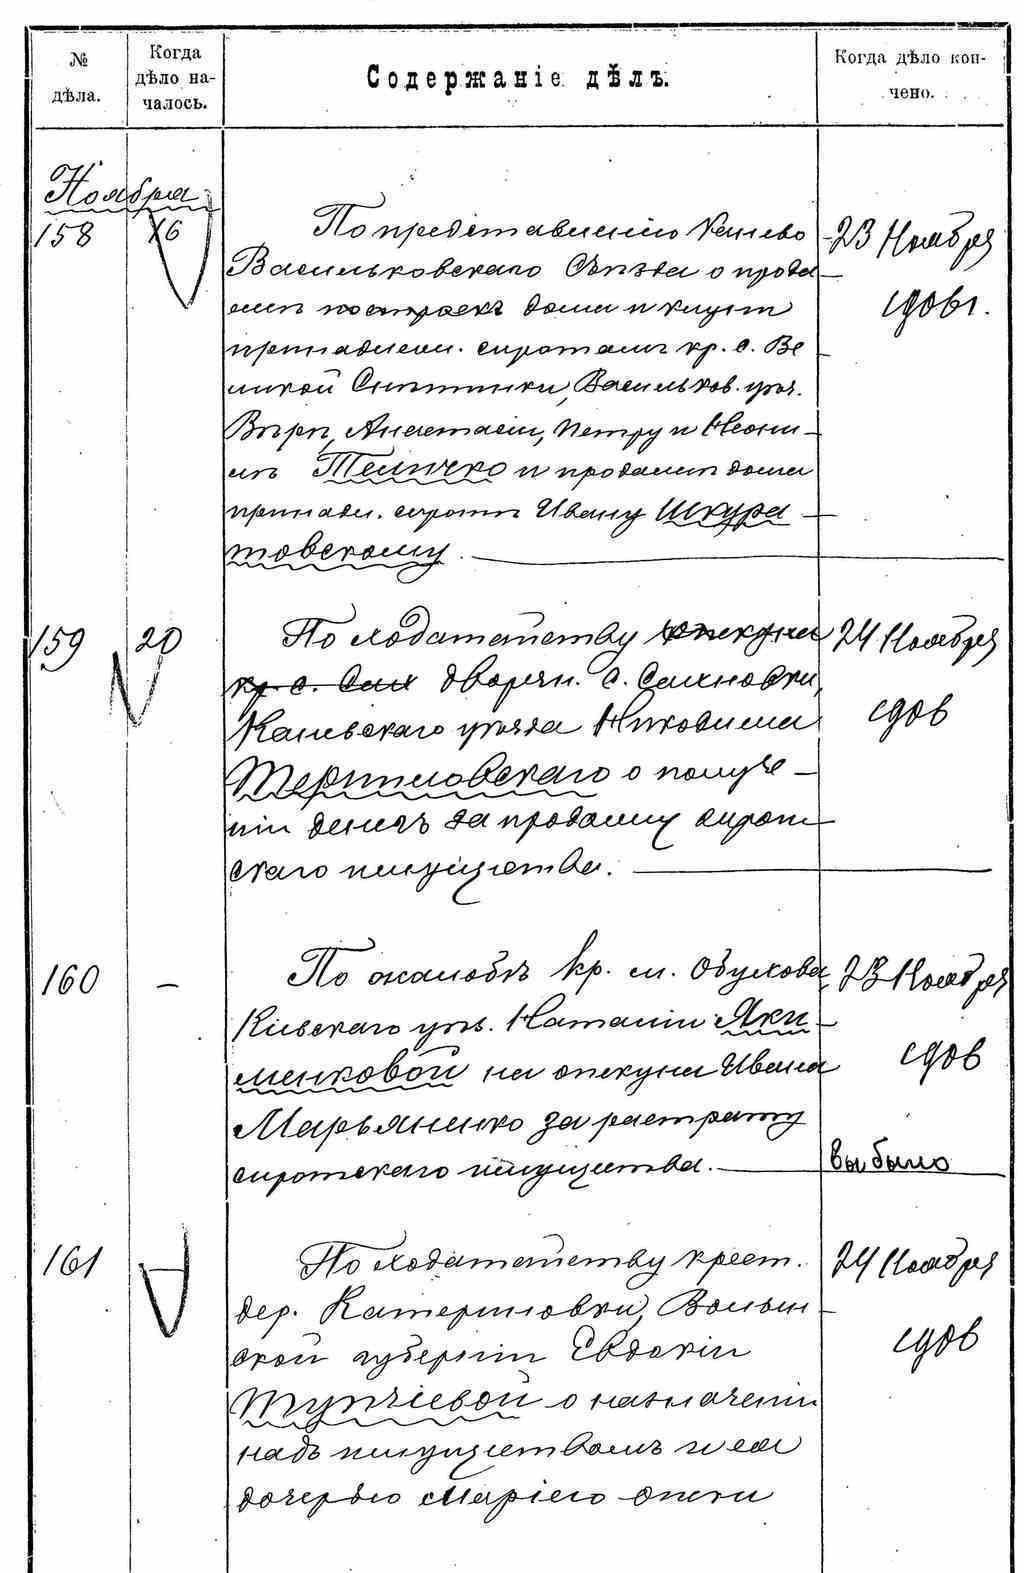 № дѣла.
Когда дѣло началось.
Содержаніе дѣлъ.
Когда дѣло кончено.
Ноября
158
16
По представленію Кіево
Васильковскаго Съѣзда о прода
жѣ построекъ дома и клуни
принадлеж. сиротамъ кр. с. Ве
ликой Снѣтинки, Васильков. уѣз.
Вѣрѣ, Анастасіи, Петру и Неони-
лѣ Теличко и продажѣ дома
принадл. сиротѣ Ивану Шкура-
товскому.
23 Ноября
159
20
По ходатайству опекуна
кр. с. Сах дворян. с. Сахновки,
Каневскаго уѣзда Никодима
Терпиловскаго о получе-
ніи денегъ за продажу сирот-
скаго имущества.
24 Ноября
160
—
По жалобѣ кр. м. Обухова
Кіевскаго уѣз. Наталіи Яки-
менковой на опекуна Ивана
Марьяненко за растрату
сиротскаго имущества.
23 Ноября
выбыло
161
По ходатайству крест.
дер. Катериновки, Волын-
ской губерніи Евдокіи
о назначеніи
надъ имуществомъ и ея
дочерью Маріею опеки
24 Ноября